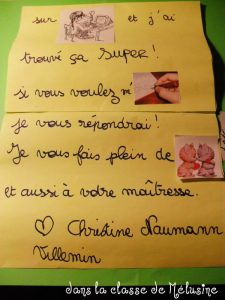 sur et j'ai
trouvé ça SUPER!
si vous voulez m'
je vous répondrai!
Je vous fais plein de
et aussi à votre maîtresse.
♡ Christine Naumann
Villemin
dans la classe de Mélusine